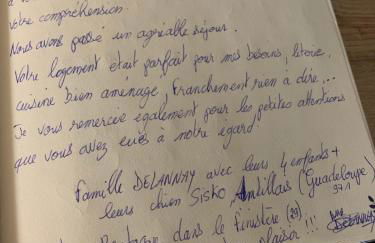 votre compréhension.
Nous avons passé un agréable séjour.
Votre logement était parfait pour mes besoins, literie,
cuisine bien aménagé, franchement rien à dire...
Je vous remercie également pour les petites attentions
que vous avez eues à notre égard.
Famille DELANNAY avec leurs 4 enfants +
leurs chien SISKO, Antillais (Guadeloupe)
971
dans le finistère (29)
plaisir !!!